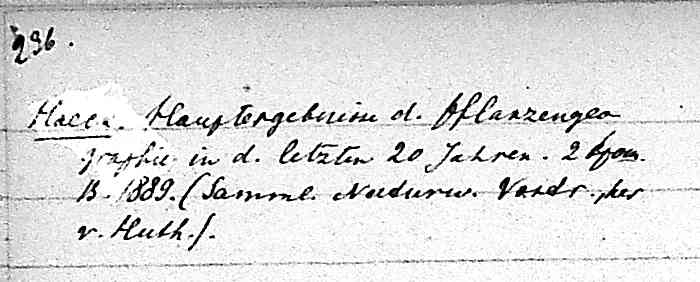 236.
Hauptergebnisse d. Pflanzengeo
graphie in d. letzten 20 Jahren. 2
B. 1889. (Samml. Naturw. Vortr., her
v. Huth.).